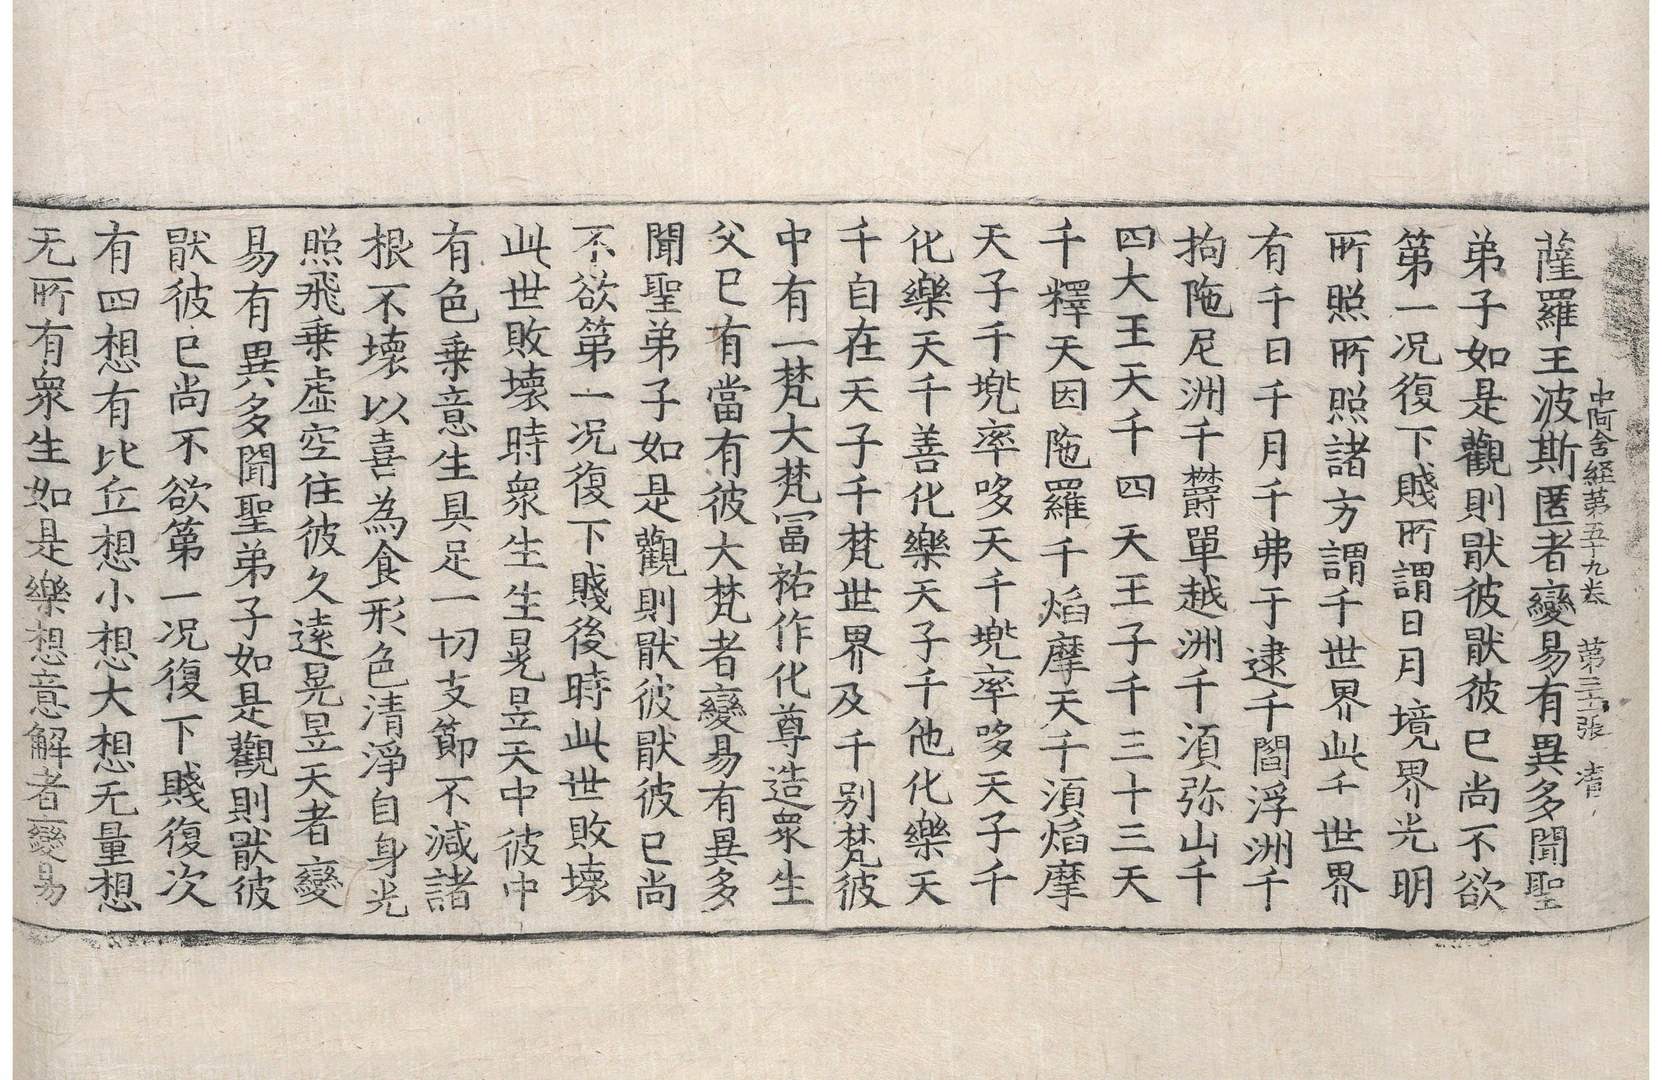 中阿含経第五十九巻　第三十張　清
薩羅王波斯匿者變易有異多聞聖
弟子如是觀則猒彼猒彼已尚不欲
第一况復下賤所謂日月境界光明
所照所照諸方謂千世界此千世界
有千日千月千弗于逮千閻浮洲千
拘陁尼洲千欝單越洲千湏弥山千
四大王天千四天王子千三十三天
千釋天因陁羅千焰摩天千湏焰摩
天子千兠率哆天千兠率哆天子千
化樂天千善化樂天子千他化樂天
千自在天子千梵世界及千别梵彼
中有一梵大梵冨祐作化尊造衆生
父已有當有彼大梵者變易有異多
聞聖弟子如是觀則猒彼猒彼已尚
不欲第一况復下賤後時此世敗壞
此世敗壞時衆生生晃昱天中彼中
有色乗意生具足一切支節不減諸
根不壞以喜為食形色清淨自身光
照飛乗虚空住彼久遠晃昱天者變
易有異多聞聖弟子如是觀則猒彼
猒彼已尚不欲第一况復下賤復次
有四想有比丘想小想大想无量想
无所有衆生如是樂想意解者變易